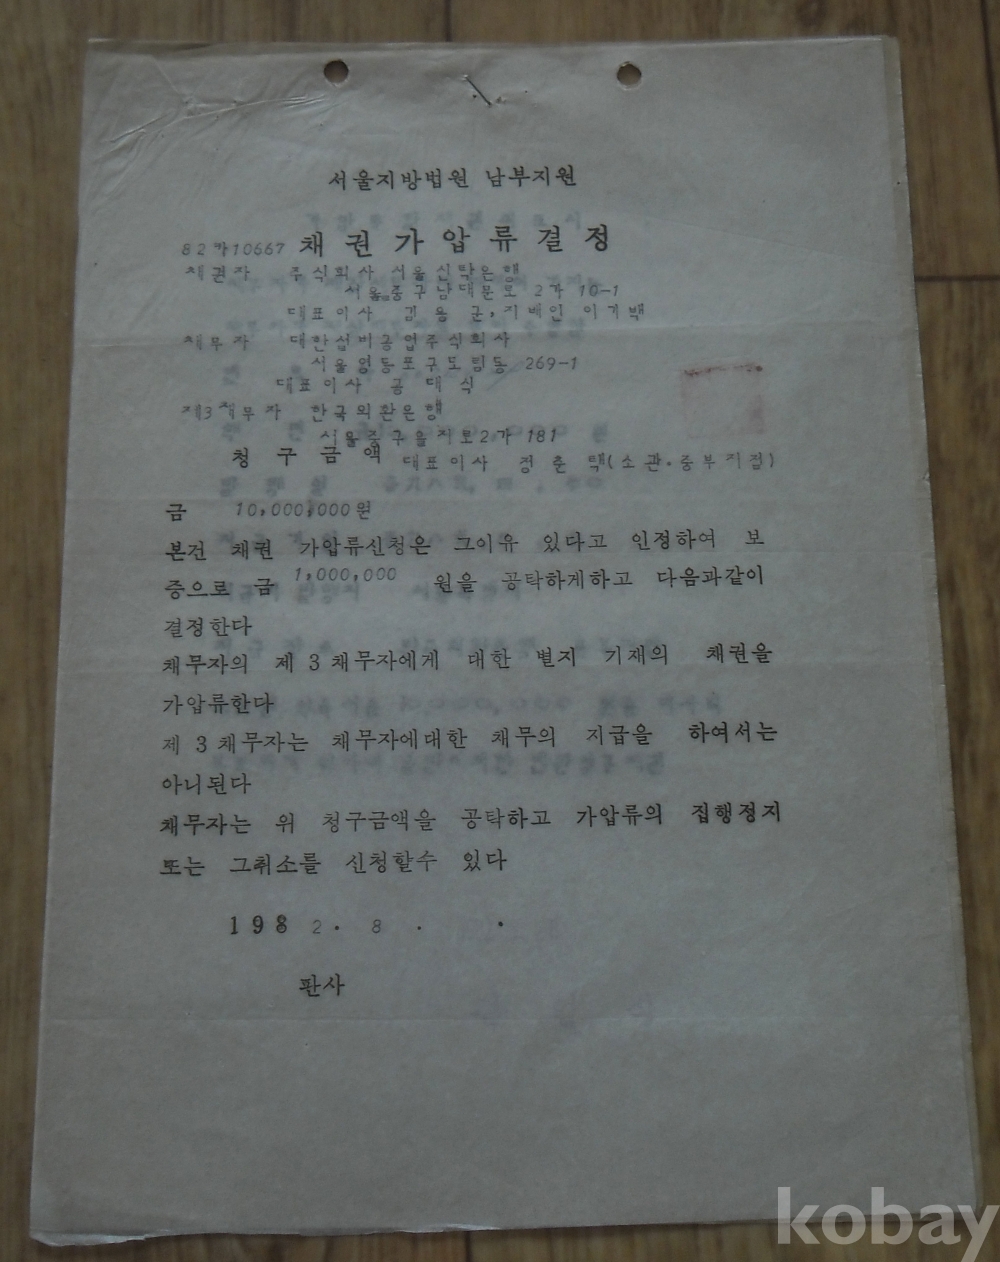 서울지방법원 남부지원
82카10667 채권가압류결정
채권자 주식회사 서울신탁은행
서울 중구남대문로 2가 10-1
대표이사 김용운, 지배인 이기백
채무자 대한설비공업주식회사
서울영등포구도림동 269-1
대표이사 공대식
제3채무자 한국외환은행
서울중구을지로2가 181
청구금액 대표이사 정춘택(소관·중부지점)
금 10,000,000원
본건 채권 가압류신청은 그이유 있다고 인정하여 보
증으로 금 1,000,000 원을 공탁하게하고 다음과같이
결정한다
채무자의 제 3 채무자에게 대한 별지 기재의 채권을
가압류한다
제 3 채무자는 채무자에대한 채무의 지급을 하여서는
아니된다
채무자는 위 청구금액을 공탁하고 가압류의 집행정지
또는 그취소를 신청할수 있다
198 2 . 8 . .
판사
kobay